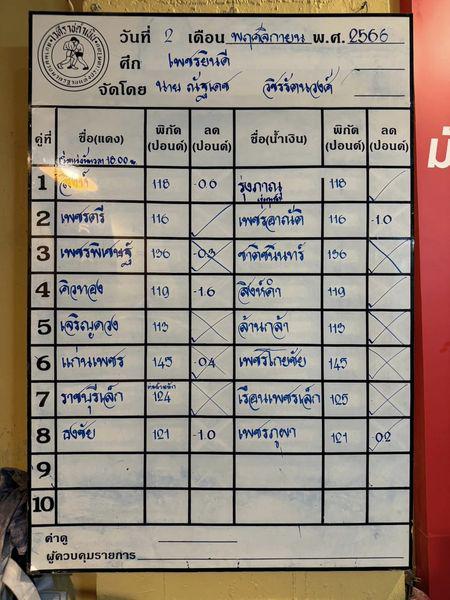 วันที่ 2 เดือน พฤศจิกายน พ.ศ. 2566
ศึก เพชรยินดี
จัดโดย นาย ณัฐเดช วชิรรัตนวงศ์
คู่ที่ ชื่อ(แดง) พิกัด (ปอนด์) ลด (ปอนด์) ชื่อ(น้ำเงิน) พิกัด (ปอนด์) ลด (ปอนด์)
1 118 -0.6 รุ่งภาณุ 118
2 เพชรตรี 116 เพชรอาณัติ 116 -1.0
3 เพชรพิเศษฐ์ 136 ชาติชนินทร์ 136
4 คิวทอง 119 -1.6 สิงห์ดำ 119
5 เจริญดวง 113 ล้านกล้า 113
6 แก่นเพชร 145 -0.4 เพชรโกยชัย 145
7 ราชบุรีเล็ก 124 เรือนเพชรเล็ก 125
8 ธงชัย 121 -1.0 เพชรภูผา 121 0.2
9
10
ค่าดู
ผู้ควบคุมรายการ